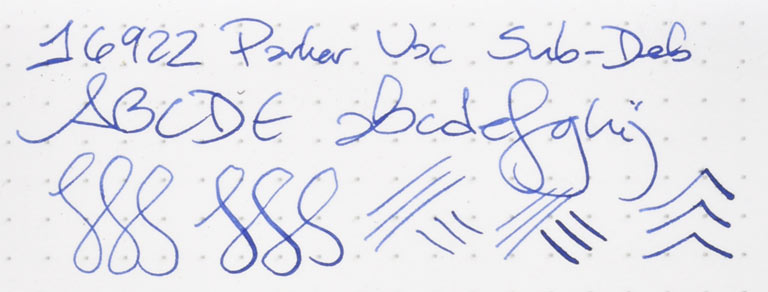 16922 Parker Vac Sub-Deb
ABCDE abcdefghij